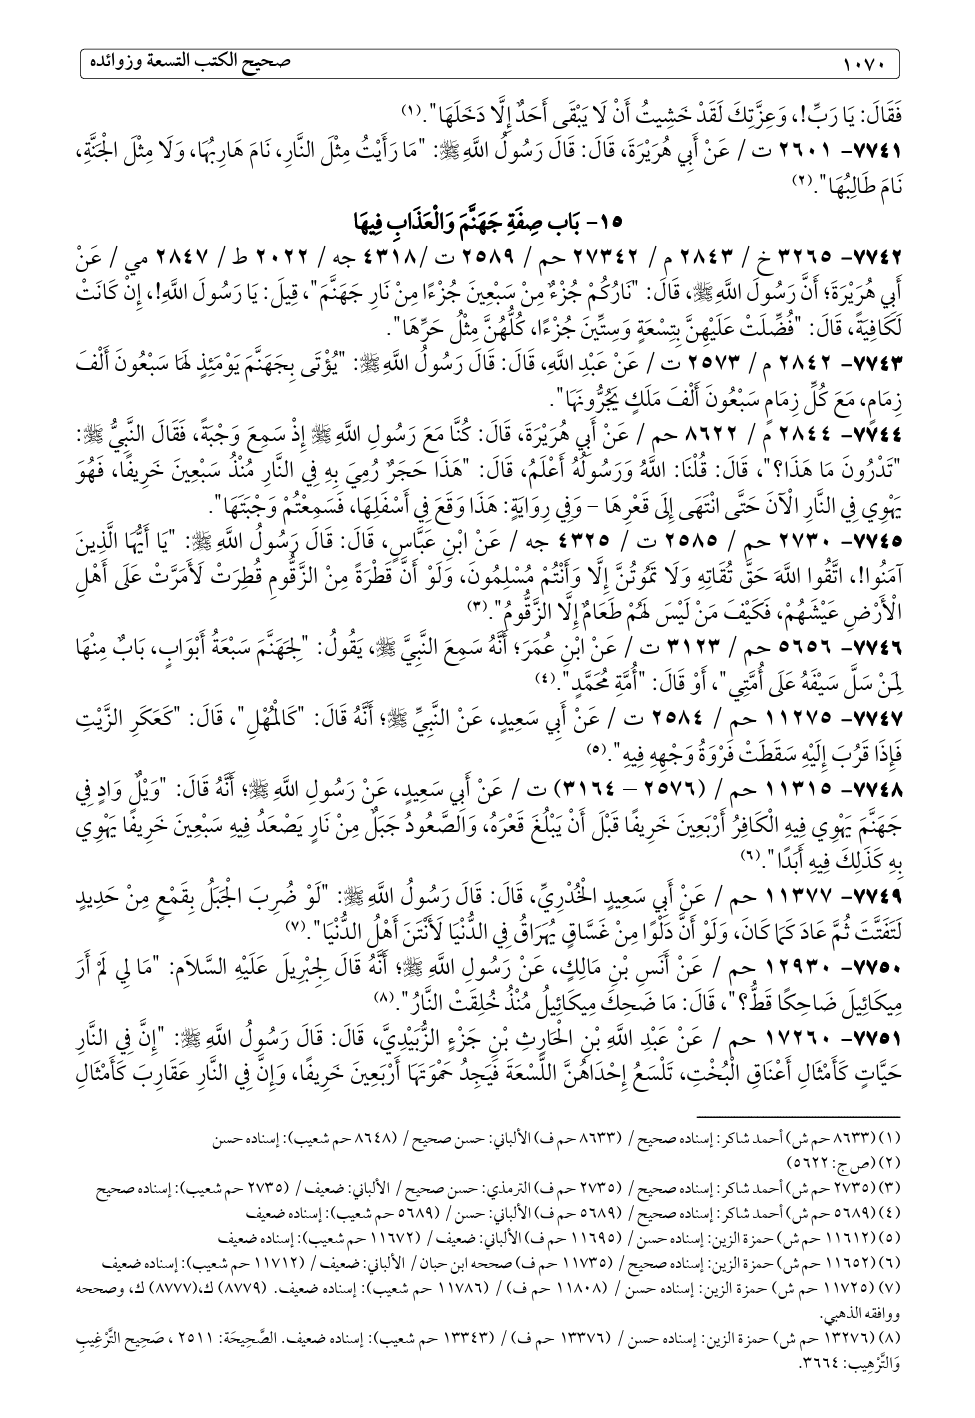 ١٠٧٠ صحيح الكتب التسعة وزوائده
فَقَالَ: يَا رَبِّ!، وَعِزَّتِكَ لَقَدْ خَشِيتُ أَنْ لَا يَبْقَى أَحَدٌ إِلَّا دَخَلَهَا". (١)
٧٧٤١- ٢٦٠١ ت / عَنْ أَبِي هُرَيْرَةَ، قَالَ: قَالَ رَسُولُ اللَّهِ ﷺ: "مَا رَأَيْتُ مِثْلَ النَّارِ، نَامَ هَارِبُهَا، وَلَا مِثْلَ الْجَنَّةِ،
نَامَ طَالِبُهَا". (٢)
١٥- بَاب صِفَةِ جَهَنَّمَ وَالْعَذَابِ فِيهَا
٧٧٤٢- ٣٢٦٥ خ / ٢٨٤٣ م / ٢٧٣٤٢ حم / ٢٥٨٩ ت /٤٣١٨ جه / ٢٠٢٢ ط / ٢٨٤٧ مي / عَنْ
أَبِي هُرَيْرَةَ؛ أَنَّ رَسُولَ اللَّهِ ﷺ، قَالَ: "نَارُكُمْ جُزْءٌ مِنْ سَبْعِينَ جُزْءًا مِنْ نَارِ جَهَنَّمَ"، قِيلَ: يَا رَسُولَ اللَّهِ!، إِنْ كَانَتْ
لَكَافِيَةً، قَالَ: "فُضِّلَتْ عَلَيْهِنَّ بِتِسْعَةٍ وَسِتِّينَ جُزْءًا، كُلُّهُنَّ مِثْلُ حَرِّهَا".
٧٧٤٣- ٢٨٤٢ م / ٢٥٧٣ ت / عَنْ عَبْدِ اللَّهِ، قَالَ: قَالَ رَسُولُ اللَّهِ ﷺ: "يُؤْتَى بِجَهَنَّمَ يَوْمَئِذٍ لَهَا سَبْعُونَ أَلْفَ
زِمَامٍ، مَعَ كُلِّ زِمَامٍ سَبْعُونَ أَلْفَ مَلَكٍ يَجُرُّونَهَا".
٧٧٤٤- ٢٨٤٤ م / ٨٦٢٢ حم / عَنْ أَبِي هُرَيْرَةَ، قَالَ: كُنَّا مَعَ رَسُولِ اللَّهِ ﷺ إِذْ سَمِعَ وَجْبَةً، فَقَالَ النَّبِيُّ ﷺ:
"تَدْرُونَ مَا هَذَا؟"، قَالَ: قُلْنَا: اللَّهُ وَرَسُولُهُ أَعْلَمُ، قَالَ: "هَذَا حَجَرٌ رُمِيَ بِهِ فِي النَّارِ مُنْذُ سَبْعِينَ خَرِيفًا، فَهُوَ
يَهْوِي فِي النَّارِ الْآنَ حَتَّى انْتَهَى إِلَى قَعْرِهَا – وَفِي رِوَايَةٍ: هَذَا وَقَعَ فِي أَسْفَلِهَا، فَسَمِعْتُمْ وَجْبَتَهَا".
٧٧٤٥- ٢٧٣٠ حم / ٢٥٨٥ ت / ٤٣٢٥ جه / عَنْ ابْنِ عَبَّاسٍ، قَالَ: قَالَ رَسُولُ اللَّهِ ﷺ: "يَا أَيُّهَا الَّذِينَ
آمَنُوا!، اتَّقُوا اللَّهَ حَقَّ تُقَاتِهِ وَلَا تَمُوتُنَّ إِلَّا وَأَنْتُمْ مُسْلِمُونَ، وَلَوْ أَنَّ قَطْرَةً مِنْ الزَّقُّومِ قُطِرَتْ لَأَمَرَّتْ عَلَى أَهْلِ
الْأَرْضِ عَيْشَهُمْ، فَكَيْفَ مَنْ لَيْسَ لَهُمْ طَعَامٌ إِلَّا الزَّقُّومُ". (٣)
٧٧٤٦- ٥٦٥٦ حم / ٣١٢٣ ت / عَنْ ابْنِ عُمَرَ؛ أَنَّهُ سَمِعَ النَّبِيَّ ﷺ، يَقُولُ: "لِجَهَنَّمَ سَبْعَةُ أَبْوَابٍ، بَابٌ مِنْهَا
لِمَنْ سَلَّ سَيْفَهُ عَلَى أُمَّتِي"، أَوْ قَالَ: "أُمَّةِ مُحَمَّدٍ". (٤)
٧٧٤٧- ١١٢٧٥ حم / ٢٥٨٤ ت / عَنْ أَبِي سَعِيدٍ، عَنْ النَّبِيِّ ﷺ؛ أَنَّهُ قَالَ: "كَالْمُهْلِ"، قَالَ: "كَعَكَرِ الزَّيْتِ
فَإِذَا قَرُبَ إِلَيْهِ سَقَطَتْ فَرْوَةُ وَجْهِهِ فِيهِ". (٥)
٧٧٤٨- ١١٣١٥ حم / (٢٥٧٦ – ٣١٦٤) ت / عَنْ أَبِي سَعِيدٍ، عَنْ رَسُولِ اللَّهِ ﷺ؛ أَنَّهُ قَالَ: "وَيْلٌ وَادٍ فِي
جَهَنَّمَ يَهْوِي فِيهِ الْكَافِرُ أَرْبَعِينَ خَرِيفًا قَبْلَ أَنْ يَبْلُغَ قَعْرَهُ، وَالصَّعُودُ جَبَلٌ مِنْ نَارٍ يَصْعَدُ فِيهِ سَبْعِينَ خَرِيفًا يَهْوِي
بِهِ كَذَلِكَ فِيهِ أَبَدًا". (٦)
٧٧٤٩- ١١٣٧٧ حم / عَنْ أَبِي سَعِيدٍ الْخُدْرِيِّ، قَالَ: قَالَ رَسُولُ اللَّهِ ﷺ: "لَوْ ضُرِبَ الْجَبَلُ بِقَمْعٍ مِنْ حَدِيدٍ
لَتَفَتَّتَ ثُمَّ عَادَ كَمَا كَانَ، وَلَوْ أَنَّ دَلْوًا مِنْ غَسَّاقٍ يُهَرَاقُ فِي الدُّنْيَا لَأَنْتَنَ أَهْلُ الدُّنْيَا". (٧)
٧٧٥٠- ١٢٩٣٠ حم / عَنْ أَنَسِ بْنِ مَالِكٍ، عَنْ رَسُولِ اللَّهِ ﷺ؛ أَنَّهُ قَالَ لِجِبْرِيلَ عَلَيْهِ السَّلَام: "مَا لِي لَمْ أَرَ
مِيكَائِيلَ ضَاحِكًا قَطُّ؟"، قَالَ: مَا ضَحِكَ مِيكَائِيلُ مُنْذُ خُلِقَتْ النَّارُ". (٨)
٧٧٥١- ١٧٢٦٠ حم / عَنْ عَبْدِ اللَّهِ بْنِ الْحَارِثِ بْنِ جَزْءٍ الزُّبَيْدِيَّ، قَالَ: قَالَ رَسُولُ اللَّهِ ﷺ: "إِنَّ فِي النَّارِ
حَيَّاتٍ كَأَمْثَالِ أَعْنَاقِ الْبُخْتِ، تَلْسَعُ إِحْدَاهُنَّ اللَّسْعَةَ فَيَجِدُ حَمْوَتَهَا أَرْبَعِينَ خَرِيفًا، وَإِنَّ فِي النَّارِ عَقَارِبَ كَأَمْثَالِ
(١) (٨٦٣٣ حم ش) أحمد شاكر: إسناده صحيح / (٨٦٣٣ حم ف) الألباني: حسن صحيح / (٨٦٤٨ حم شعيب): إسناده حسن
(٢) (ص ج: ٥٦٢٢)
(٣) (٢٧٣٥ حم ش) أحمد شاكر: إسناده صحيح / (٢٧٣٥ حم ف) الترمذي: حسن صحيح / الألباني: ضعيف / (٢٧٣٥ حم شعيب): إسناده صحيح
(٤) (٥٦٨٩ حم ش) أحمد شاكر: إسناده صحيح / (٥٦٨٩ حم ف) الألباني: حسن / (٥٦٨٩ حم شعيب): إسناده ضعيف
(٥) (١١٦١٢ حم ش) حمزة الزين: إسناده حسن / (١١٦٩٥ حم ف) الألباني: ضعيف / (١١٦٧٢ حم شعيب): إسناده ضعيف
(٦) (١١٦٥٢ حم ش) حمزة الزين: إسناده صحيح / (١١٧٣٥ حم ف) صححه ابن حبان / الألباني: ضعيف / (١١٧١٢ حم شعيب): إسناده ضعيف
(٧) (١١٧٢٥ حم ش) حمزة الزين: إسناده حسن / (١١٨٠٨ حم ف) / (١١٧٨٦ حم شعيب): إسناده ضعيف. (٨٧٧٩) ك،(٨٧٧٧) ك، وصححه
ووافقه الذهبي.
(٨) (١٣٢٧٦ حم ش) حمزة الزين: إسناده حسن / (١٣٣٧٦ حم ف) / (١٣٣٤٣ حم شعيب): إسناده ضعيف. الصَّحِيحَة: ٢٥١١ ، صَحِيح التَّرْغِيبِ
وَالتَّرْهِيب: ٣٦٦٤.